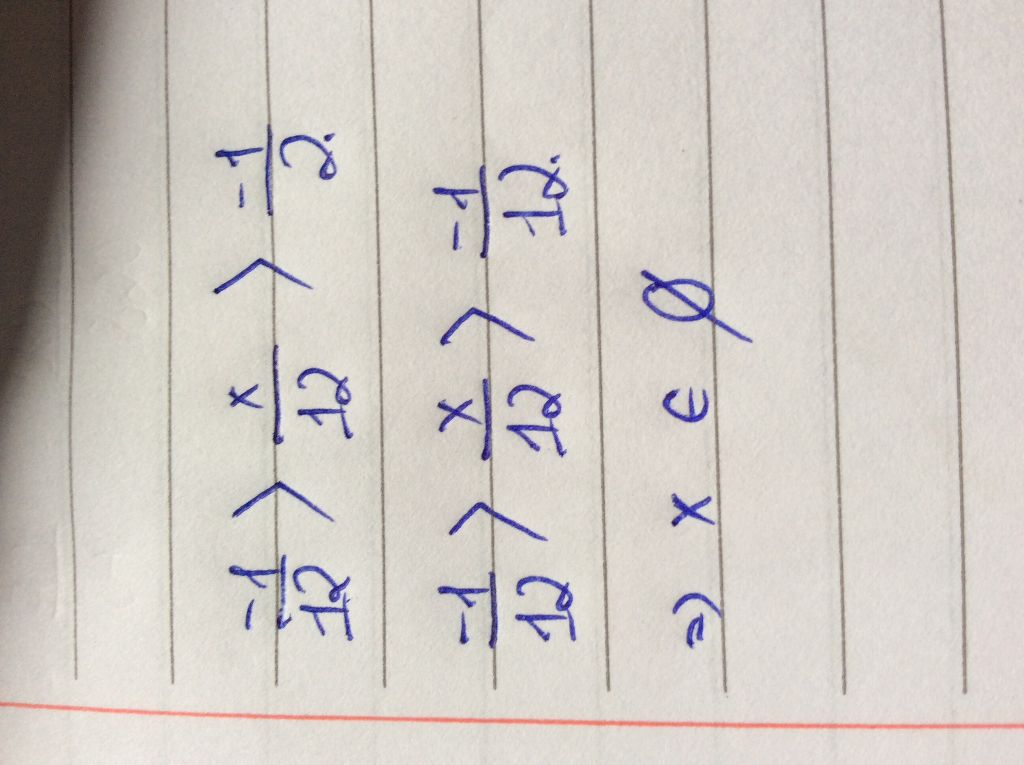 \frac{-1}{12} > \frac{x}{12} > \frac{-1}{2}
\frac{-1}{12} > \frac{x}{12} > \frac{-1}{12}
=) x ∈ ∅